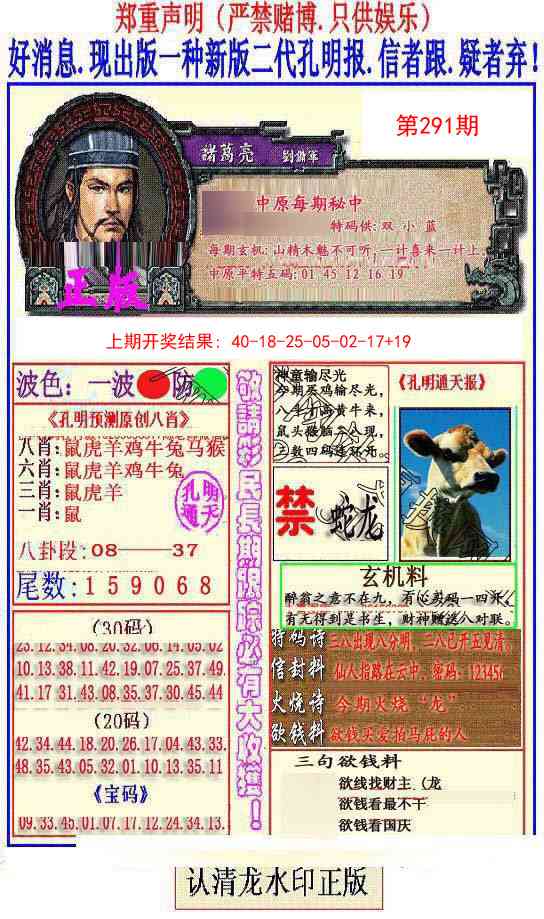 郑重声明（严禁赌博.只供娱乐）
好消息.现出版一种新版二代孔明报.信者跟.疑者弃！
第291期
諸葛亮
中原每期秘中
特码供:双 小 蓝
每期玄机:山精木魅不可听,一计喜来一计上。
中原平特五码:01 45 12 16 19
正版
上期开奖结果：40-18-25-05-02-17+19
波色：一波 防
《孔明预测原创八肖》
八肖:鼠虎羊鸡牛兔马猴
六肖:鼠虎羊鸡牛兔
三肖:鼠虎羊
一肖:鼠
孔明通天
八卦段:08——37
尾数:159068
(30码)
23.12.34.08.20.32.06.14.05.02
10.13.38.11.42.19.07.25.37.49
41.17 31.43.08.35.37.30.45.44
(20码)
42.34.44.18.20.26.17.04.43.33.
48.35.43.05.32.01.10.13.35.11
《宝码》
09.33.45.01.07.17.12.24.34.13.
敬請彩民長期跟踪必有大收獲！
神童输尽光
今期买鸡输尽光，
鼠头
《孔明通天报》
禁
蛇龙
玄机料
醉翁之意不在九，有心买码一四开，
有无得到是书生，财神赠送八对联。
特码诗 三八出现八分明，二八已开五见清。
信封料 仙人指路在云中，密码：123456
火烧诗 今期火烧“龙”
欲钱料 欲钱买爱拍马屁的人
三句欲钱料
欲线找财主.(龙
欲钱看最不干
欲钱看国庆
认清龙水印正版